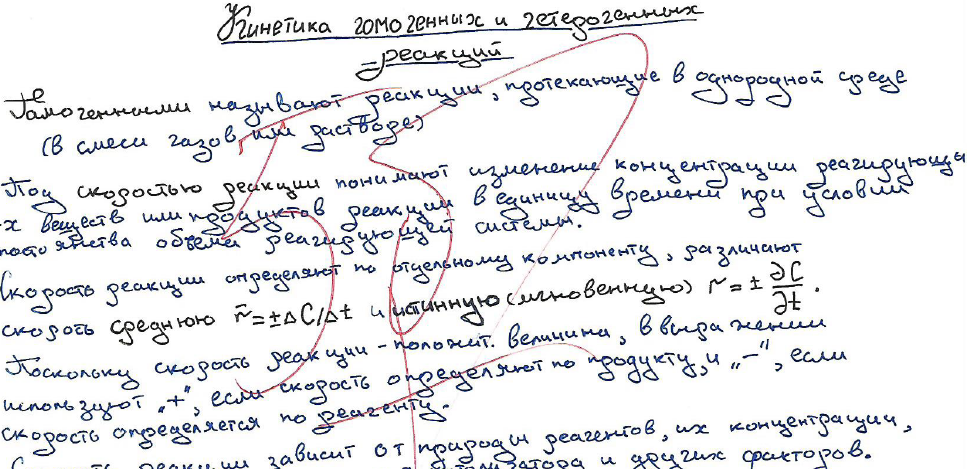 Кинетика гомогенных и гетерогенных
реакций
Гомогенными называют реакции, протекающие в однородной среде
(в смеси газов или растворе)
Под скоростью реакции понимают изменение концентрации реагирующи
-х веществ или продуктов реакции в единицу времени при условии
постоянства объема реагирующей системы.
Скорость реакции определяют по отдельному компоненту, различают
скорость среднюю r̄=±ΔC/Δt и истинную (мгновенную) r=±∂C/∂t.
Поскольку скорость реакции - положит. величина, в выражении
используют „+“, если скорость определяют по продукту, и „-“, если
скорость определяется по реагенту.
реакции зависит от природы реагентов, их концентрации,
и других факторов.